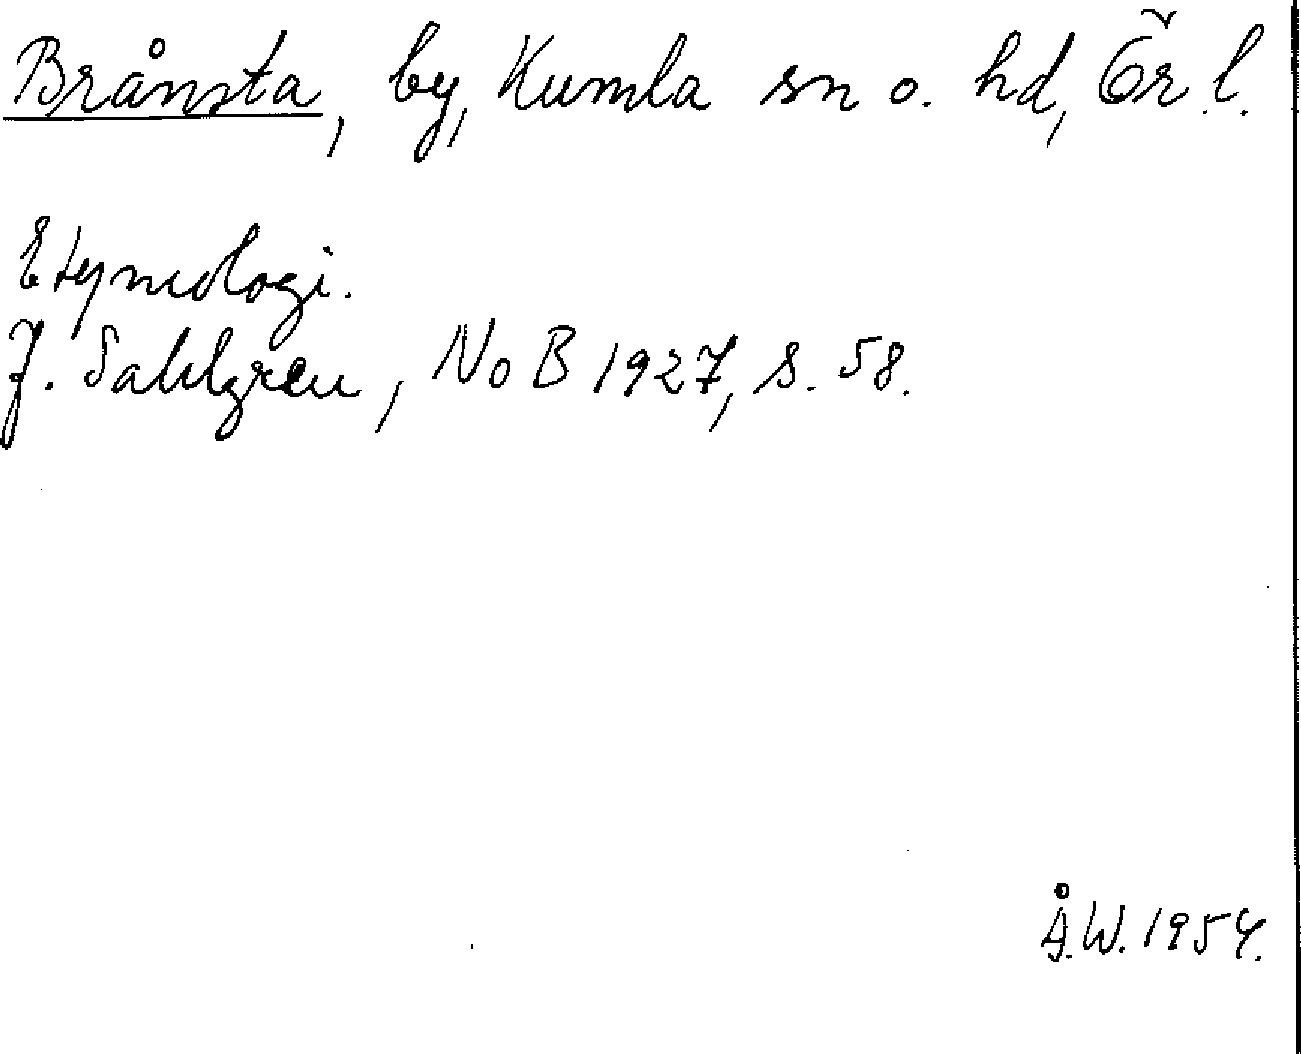 Brånsta, by, Kumla sn o. hd, Ör. l.
Etymologi.
J. Sahlgren, NoB 1927, s. 58.
Å.W. 1954.